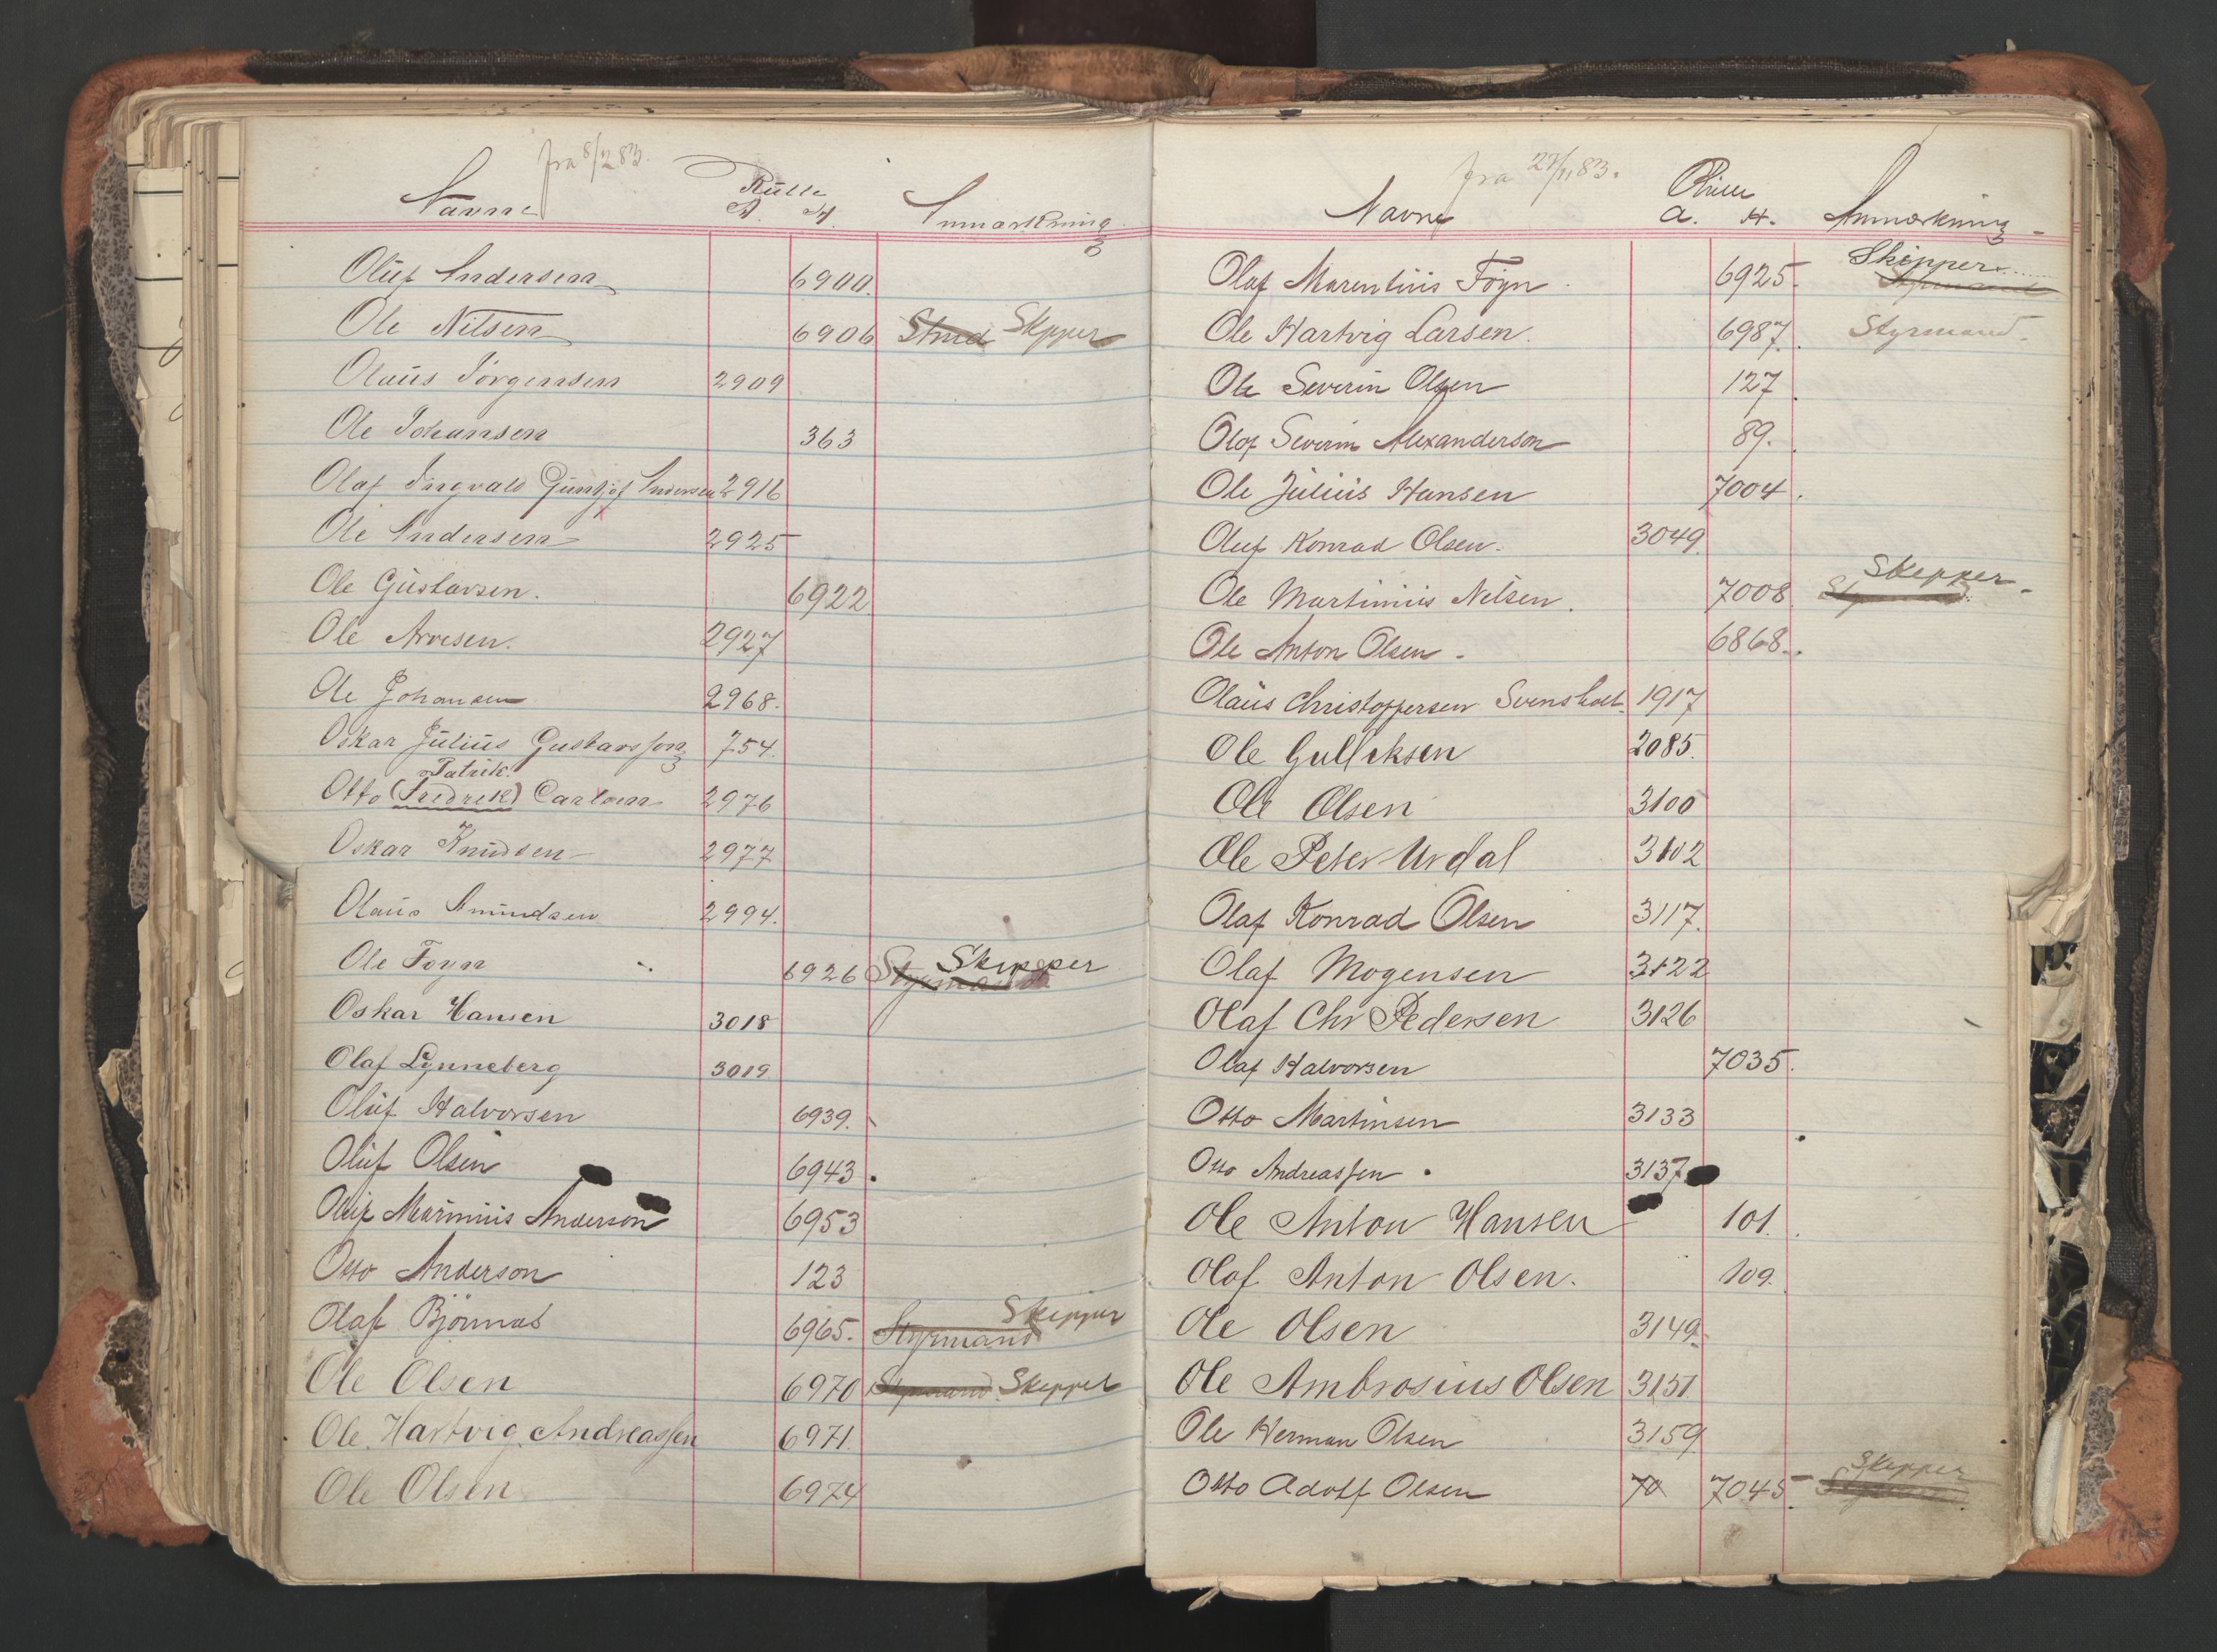 fra 8/2 83.
Navne Rulle Anmærkning
A. H.
Oluf Andersen 6900.
Ole Nilsen 6906 Stmd Skipper
Olaus Jörgensen 2909
Ole Johansen 363
Olaf Ingvald Andersen 2916
Ole Andersen 2925
Ole Gustavsen. 6922
Ole Arvesen. 2927
Ole Johansen 2968.
Oskar Julius Gustavsson 754.
Patrik.
Otto (Fredrik) Carlsen 2976
Oskar Knudsen 2977
Olaus Amundsen 2994.
Ole Foyn 6926 Styrmand Skipper
Oskar Hansen 3018
Olaf Lynneberg 3019
Oluf Halvorsen 6939.
Oluf Olsen 6943.
Oluf Marinius Anderson 6953
Otto Anderson 123
Olaf Björnnas 6965. Styrmand Skipper
Ole Olsen 6970 Styrmand Skipper
Ole Hartvig Andreassen 6971.
Ole Olsen 6974
fra 27/11 83.
Navne Rulle Anmærkning
A. H.
Olaf Marentius Föyn 6925. Skipper
Styrmand
Ole Hartvig Larsen. 6987. Styrmand.
Ole Severin Olsen 127.
Olof Severin Alexanderson 89.
Ole Julius Hansen 7004.
Oluf Konrad Olsen. 3049.
Ole Martinius Nilsen. 7008 Skipper
Ole Anton Olsen 6868.
Olaus Christoffersen Svensholt 1917
Ole Gulleksen 2085.
Ole Olsen 3100
Ole Peter Urdal 3102
Olaf Konrad Olsen 3117.
Olaf Mogensen 3122
Olaf Chr Pedersen 3126
Olaf Halvorsen 7035.
Otto Martinsen 3133
Otto Andreassen 3137
Ole Anton Hansen 101.
Olof Anton Olsen. 109.
Ole Olsen 3149.
Ole Ambrosius Olsen 3151
Ole Herman Olsen 3159
Otto Adolf Olsen 70 7045. Skipper